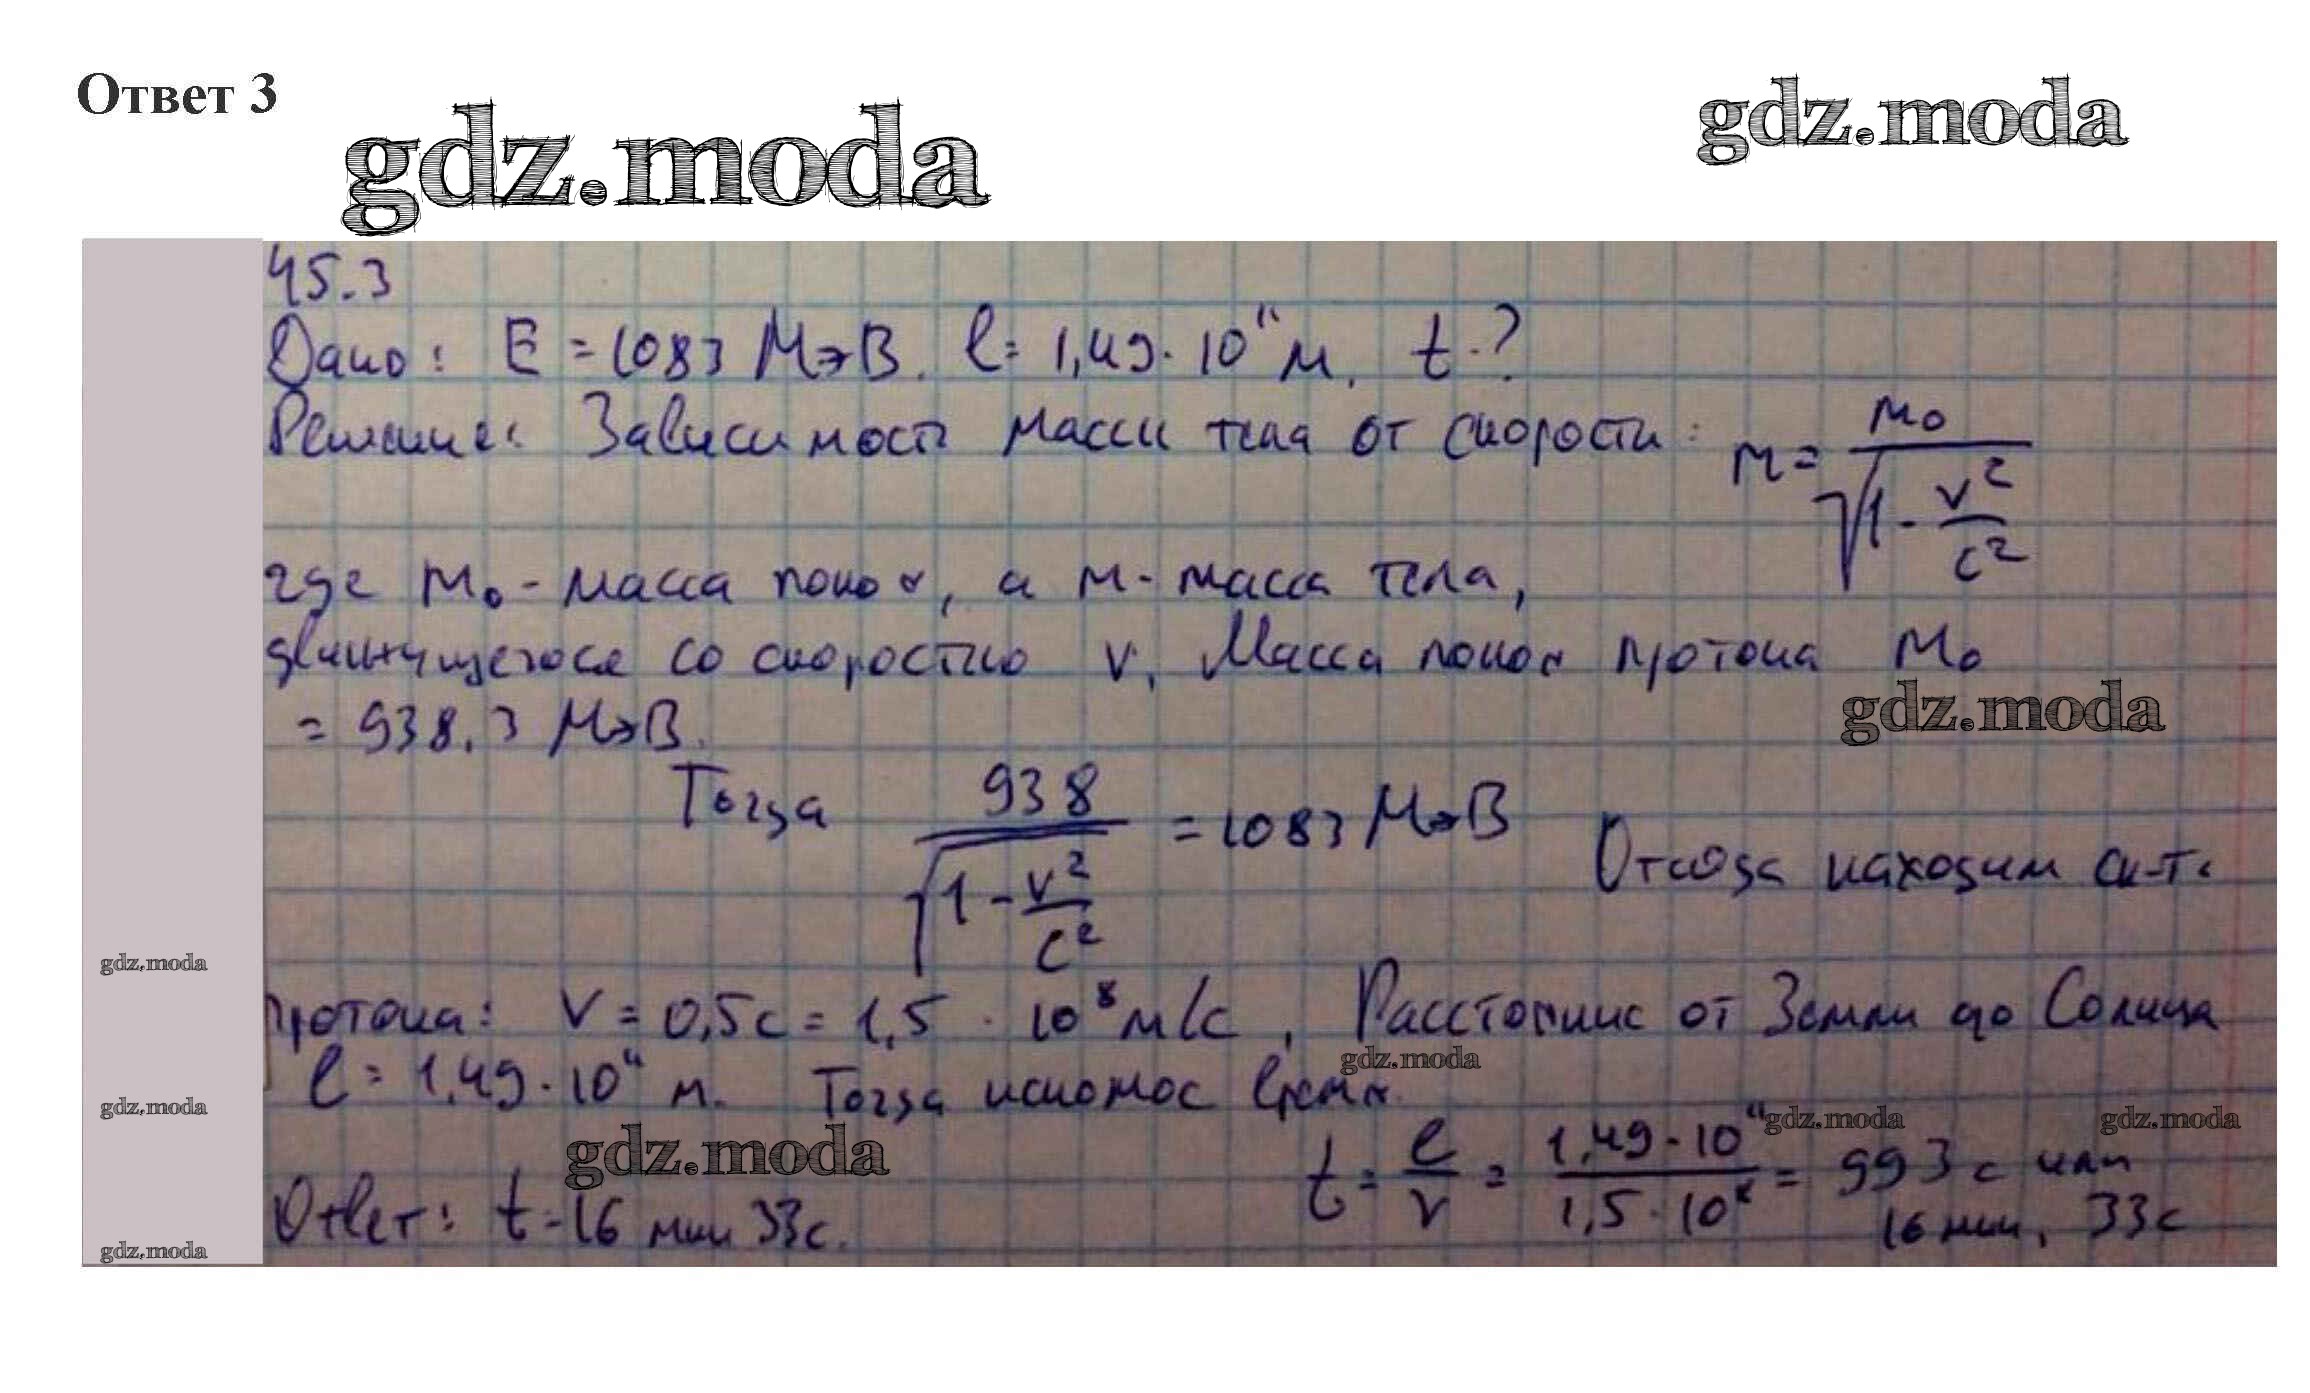 Ответ 3
gdz.moda
gdz.moda
45.3
Дано: E = 1083 МэВ. l = 1,49·10¹¹ м, t-?
Решение: Зависимость массы тела от скорости: m = m₀ / √(1 - v²/c²)
где m₀ - масса покоя, а m - масса тела,
движущегося со скоростью v. Масса покоя протона m₀
= 938.3 МэВ.
gdz.moda
Тогда 938 / √(1 - v²/c²) = 1083 МэВ Отсюда находим ск-ть
gdz.moda
протона: v = 0,5c = 1,5 · 10⁸ м/с, Расстояние от Земли до Солнца
gdz.moda
l = 1.49·10¹¹ м. Тогда искомое время.
gdz.moda
gdz.moda
gdz.moda
gdz.moda
t = l/v = 1,49·10¹¹ / 1,5·10⁸ = 993 с или
16 мин, 33с
Ответ: t = 16 мин 33с.
gdz.moda